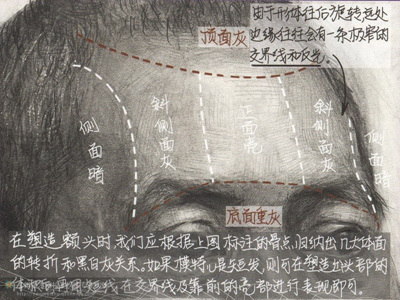 由于形体往后旋转远处
边缘往往会有一条极窄的
交界线和反光。
顶面灰
侧面暗
斜侧面灰
正面亮
斜侧面灰
侧面暗
底面重灰
在塑造额头时我们应根据上图标注的骨点,归纳出几大体面
的转折和黑白灰关系。如果模特儿是短发,则可在塑造出头部的
体积后再用短线在交界线及靠前的亮部进行表现即可。